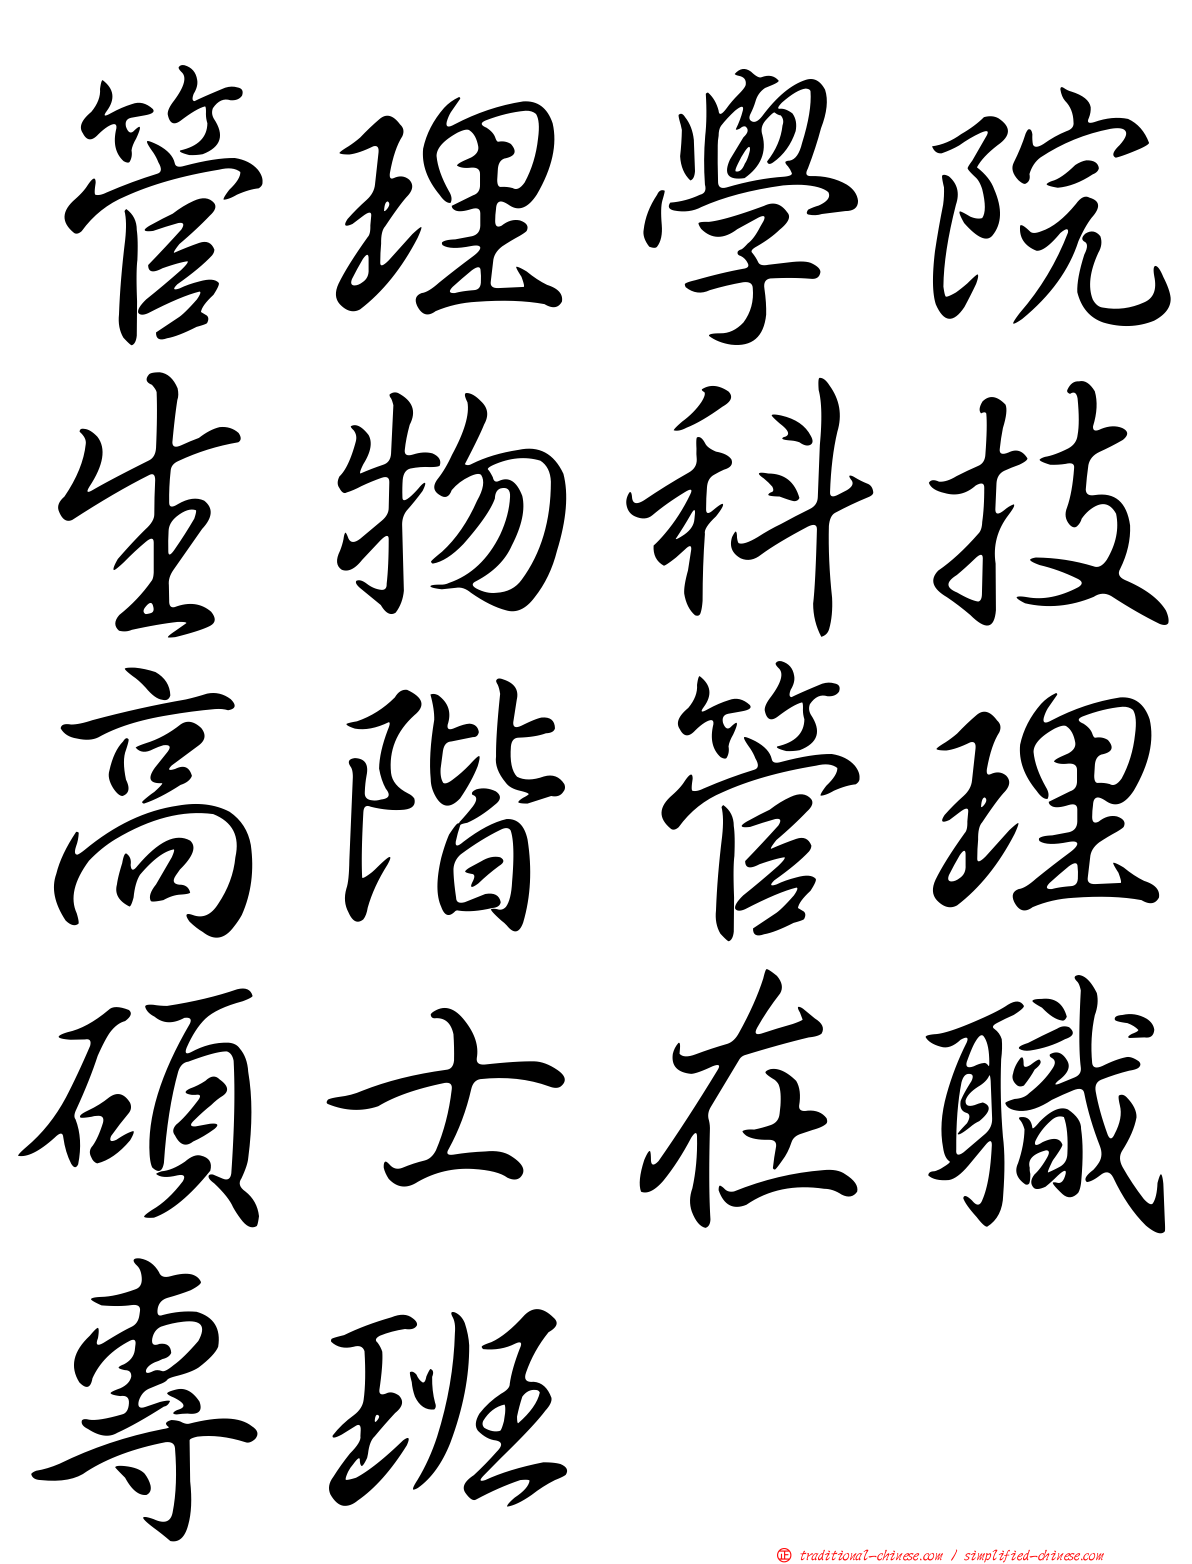 管理學院
生物科技
高階管理
碩士在職
專班
㊣ traditional-chinese.com / simplified-chinese.com